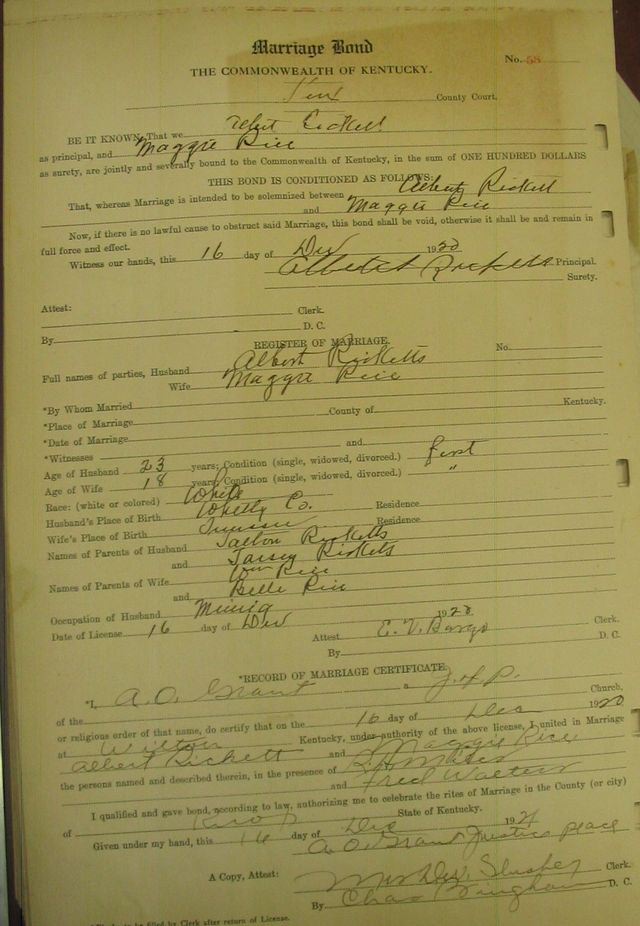 Marriage Bond
No. 58
THE COMMONWEALTH OF KENTUCKY.
Knox County Court,
BE IT KNOWN, That we
as principal, and Maggie Rice
as surety, are jointly and severally bound to the Commonwealth of Kentucky, in the sum of ONE HUNDRED DOLLARS
THIS BOND IS CONDITIONED AS FOLLOWS:
That, whereas Marriage is intended to be solemnized between Albert Rickett
and Maggie Rice
Now, if there is no lawful cause to obstruct said Marriage, this bond shall be void, otherwise it shall be and remain in
full force and effect.
Witness our hands, this 16 day of Dec 1920
Principal.
Surety.
Attest: Clerk.
By D. C.
REGISTER OF MARRIAGE.
Full names of parties, Husband Albert Ricketts No.
Wife Maggie Rice
*By Whom Married
*Place of Marriage County of Kentucky.
*Date of Marriage
*Witnesses and
Age of Husband 23 years; Condition (single, widowed, divorced.) first
Age of Wife 18 years; Condition (single, widowed, divorced.) "
Race: (white or colored) White
Husband's Place of Birth Whitly Co. Residence
Wife's Place of Birth Residence
Names of Parents of Husband Ricketts
and Ricketts
Names of Parents of Wife Wm Rice
and Belle Rice
Occupation of Husband Mining
Date of License 16 day of Dec 1920
Attest E. V. Bargo Clerk.
By D. C.
*RECORD OF MARRIAGE CERTIFICATE.
*I, A. O. Grant a J. of P.
of the Church,
or religious order of that name, do certify that on the 16 day of Dec 1920
at Wilton Kentucky, under authority of the above license, I united in Marriage
Albert Rickett and Maggie Rice
the persons named and described therein, in the presence of
and Fred Walters
I qualified and gave bond, according to law, authorizing me to celebrate the rites of Marriage in the County (or city)
of Knox State of Kentucky.
Given under my hand, this 16 day of Dec
A. O. Grant Justice peace
A Copy, Attest: Clerk.
By Chas Bingham D. C.
to be filed by Clerk after return of License.